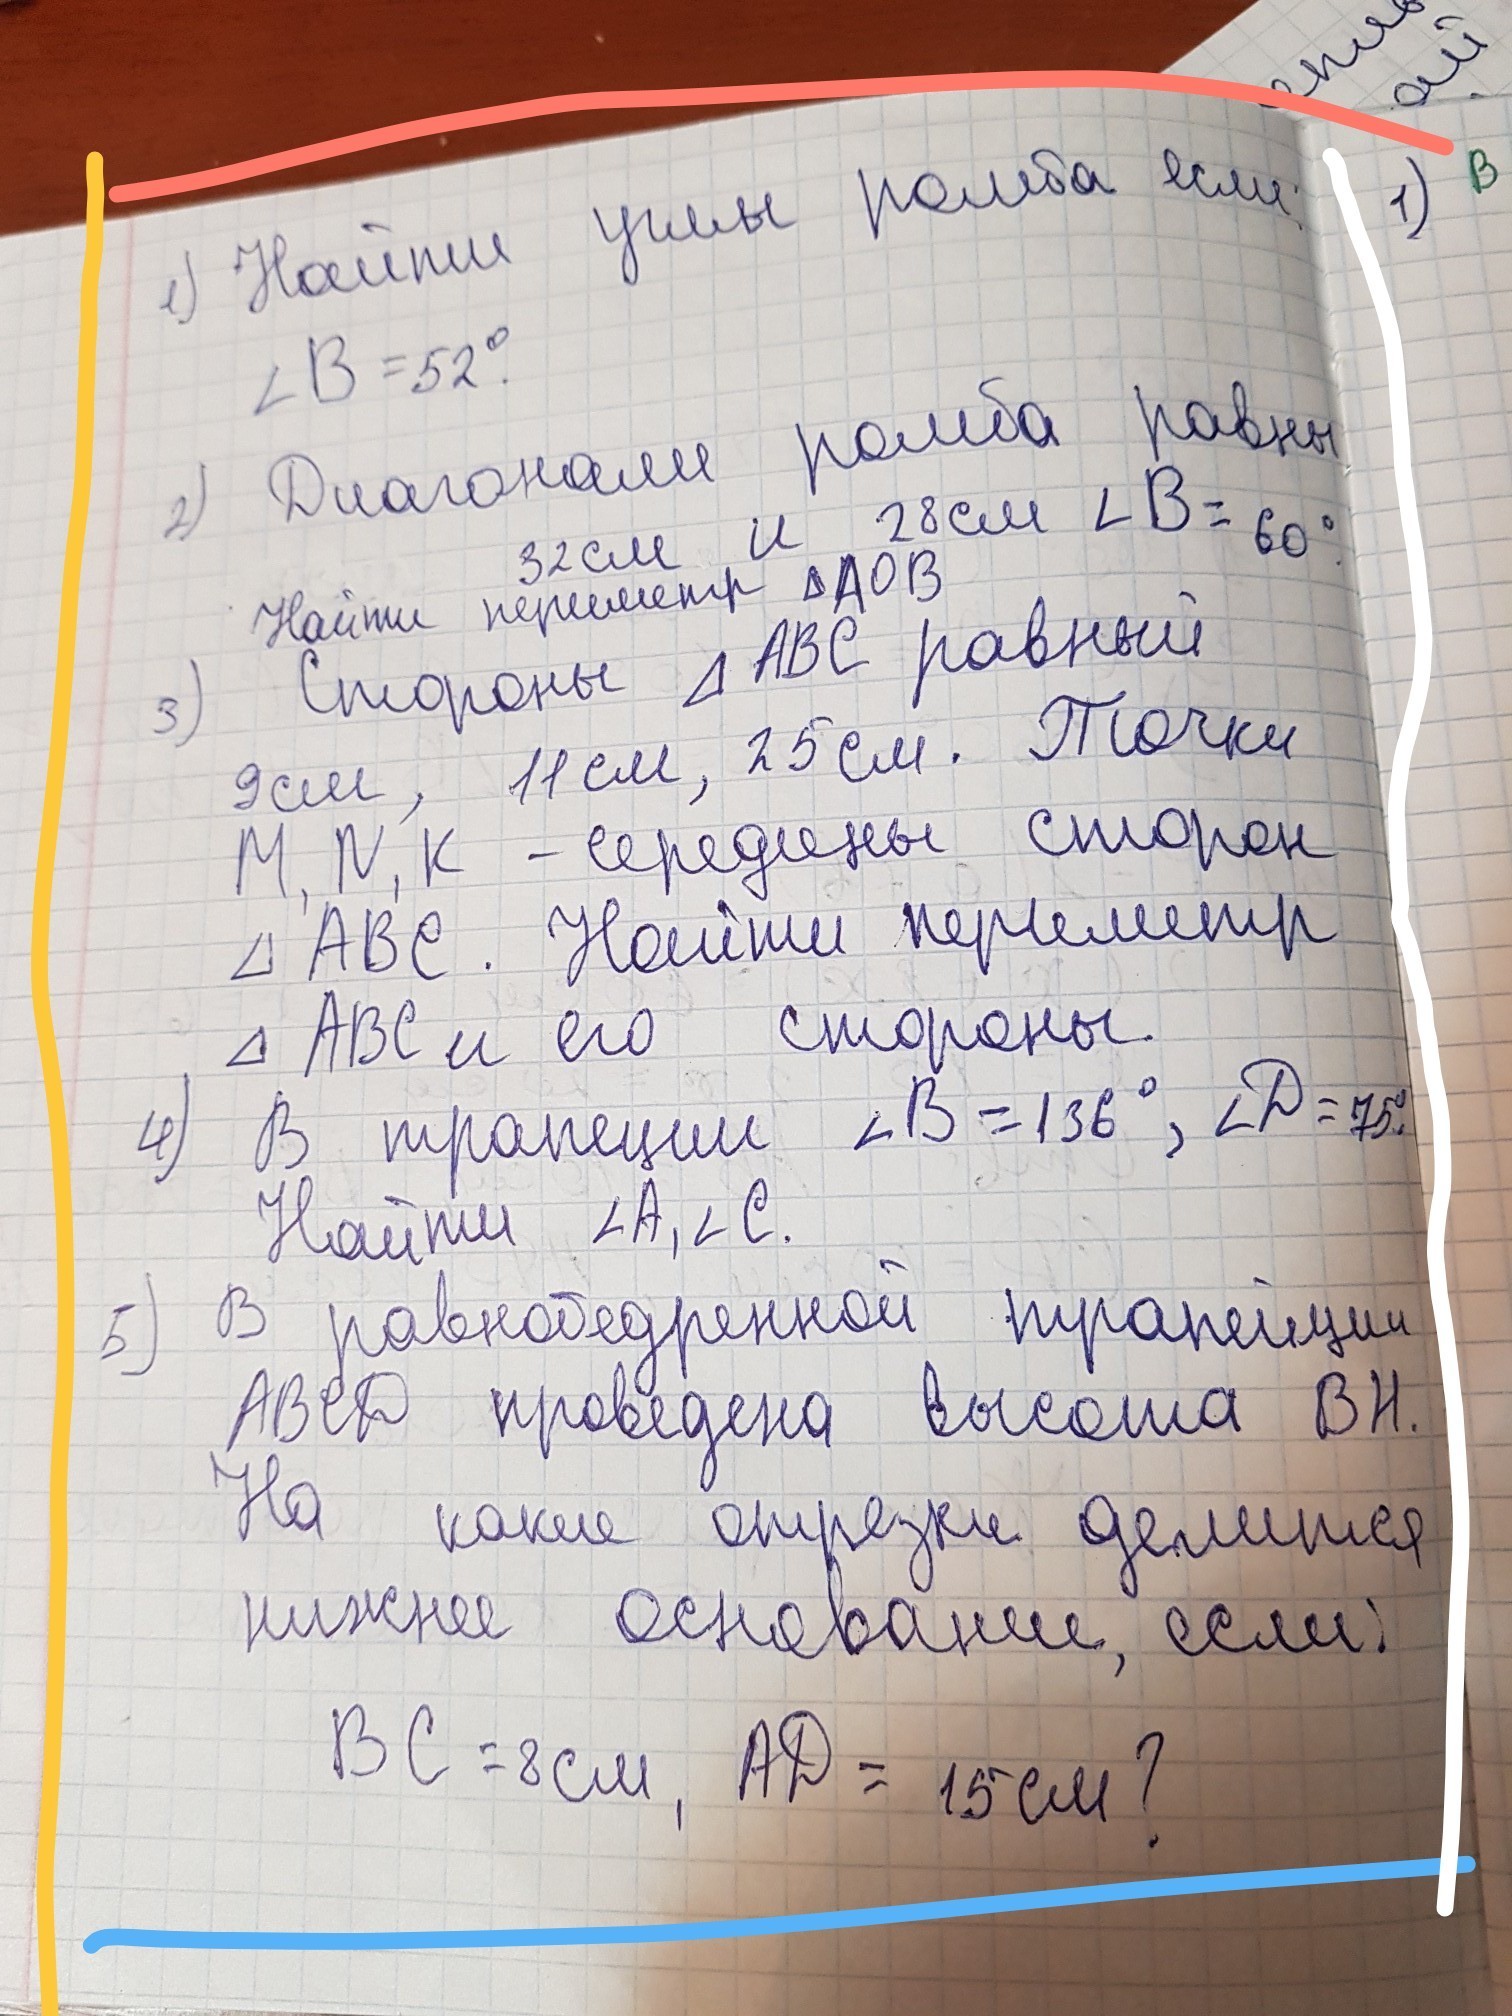 1) Найти углы ромба если:
∠B = 52°.
2) Диагонали ромба равны
32см и 28см ∠B = 60°.
Найти периметр ΔAOB
3) Стороны Δ ABC равный
9см, 11см, 25см. Точки
M, N, K - середины сторон
Δ ABC. Найти периметр
Δ ABC и его стороны.
4) В трапеции ∠B = 136°, ∠D = 75°.
Найти ∠A, ∠C.
5) В равнобедренной трапейции
ABCD проведена высота BH.
На какие отрезки делится
нижнее основание, если:
BC = 8см, AD = 15см?
1) В